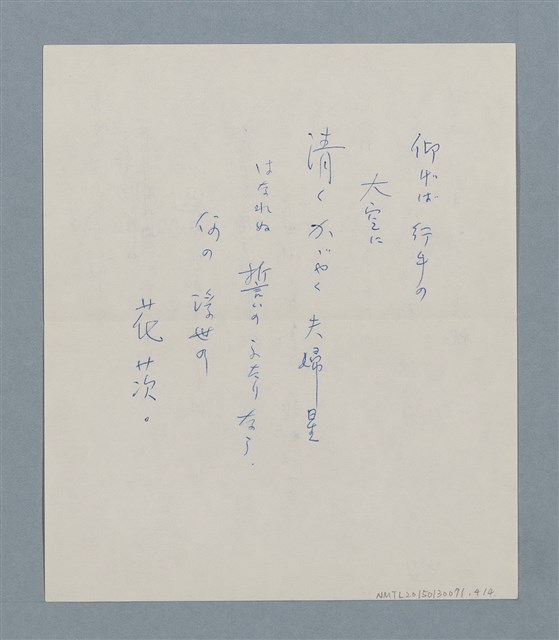 仰げば 行手の
大空に
清く かゞやく 夫婦星
はなれぬ 誓いの ふたりなら、
何の 浮世の
花茨。
NMTL20150130071.414